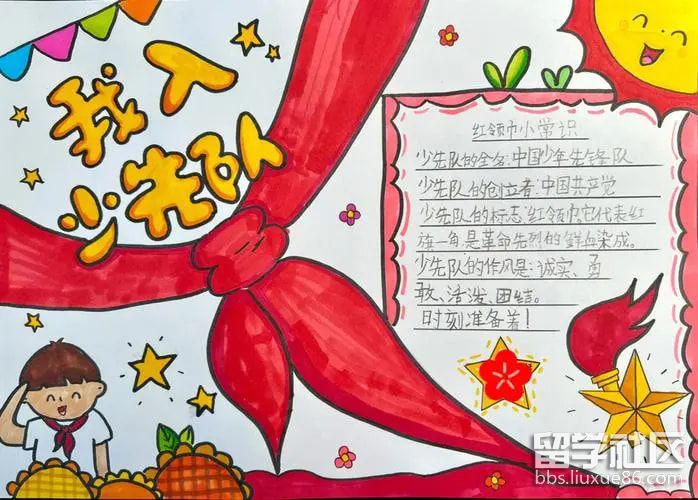 我入
少先队
红领巾小常识
少先队的全名:中国少年先锋队
少先队的创立者:中国共产党
少先队的标志:红领巾,它代表红
旗一角,是革命先烈的鲜血染成。
少先队的作风是:诚实、勇
敢、活泼、团结。
时刻准备着!
留学社区
bbs.liuxue86.com